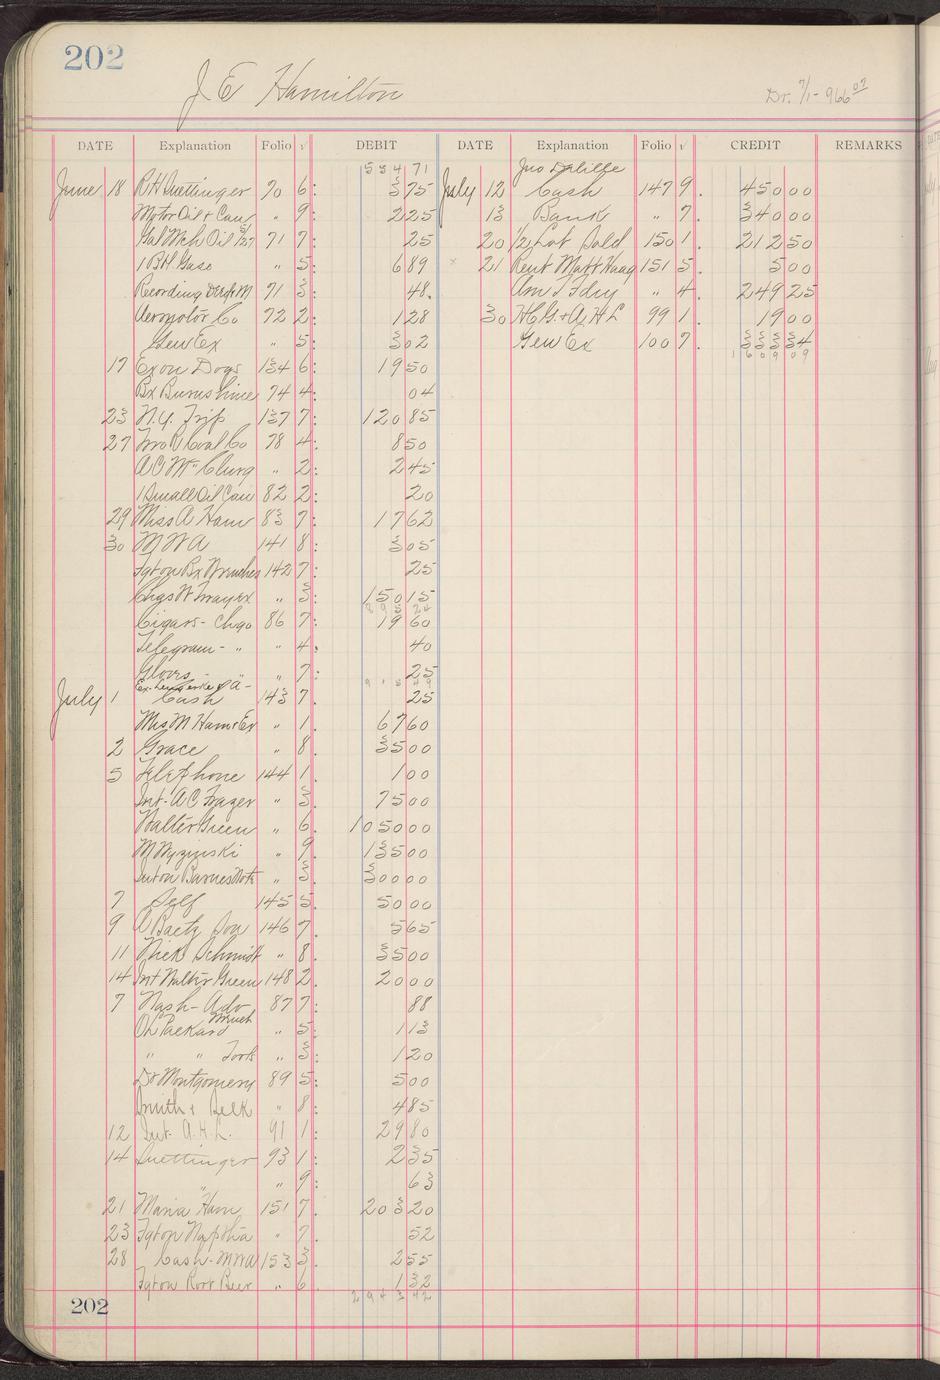 202
J E Hamilton
Dr. 7/1- 966 07
DATE Explanation Folio √ DEBIT DATE Explanation Folio √ CREDIT REMARKS
534 71
June 18 R H Suettinger 70 6: 3 75
Motor Oil + Can „ 9: 2 25
Gal Mch Oil 71 7: 25
1 Bbl Gaso „ 5: 6 89
Recording 71 3: 48
Aermotor Co 72 2: 1 28
Gen Ex „ 5: 3 02
17 Ex on Dogs 134 6: 19 50
Bx Burnshine 74 4: 04
23 N.Y. Trip 137 7: 120 85
27 Coal Co 78 4: 8 50
A C McClurg „ 2: 2 45
1 Small Oil Can 82 2: 20
29 Miss A Ham 83 7: 17 62
30 M W A 141 8: 3 05
Bx Brushes 142 7: 25
Chas W Ex „ 3: 150 15
895 24
Cigars - Chgo 86 7: 19 60
Telegram - „ „ 4: 40
Gloves - „ „ 7: 25
915 49
Ex-
July 1 Cash 143 7. 25
Mrs M Ham + Ex „ 1. 67 60
2 Grace „ 8. 35 00
5 Telephone 144 1. 1 00
Int- A C Frazer „ 3. 75 00
Walter Green „ 6. 1050 00
M Wyzinski „ 9. 135 00
Int on Barnes Note „ 3. 300 00
7 Self 145 5. 50 00
9 A Baetz Son 146 7. 5 65
11 Nick Schmidt „ 8. 35 00
14 Int Walter Green 148 2. 20 00
7 Nash - Adv 87 7: 88
Oh Packard „ 5: 1 13
„ „ Tools „ 3: 1 20
Dr Montgomery 89 5: 5 00
Smith + Belk „ 8: 4 85
12 Int. A.H.L. 91 1: 29 80
14 Suettinger 93 1: 2 35
„ „ 9: 63
21 Maria Ham 151 7. 203 20
23 Naptha „ 7. 52
28 Cash - MWA 153 3. 2 55
Root Beer „ 6. 1 32
2943 42
Jno Delille
July 12 Cash 147 9. 450 00
13 Bank „ 7. 340 00
20 1/2 Lot Sold 150 1. 212 50
21 Rent Matt Haag 151 5. 5 00
Am T Fdry „ 4. 249 25
30 H C G. + A H L 99 1. 19 00
Gen Ex 100 7. 333 34
1609 09
202